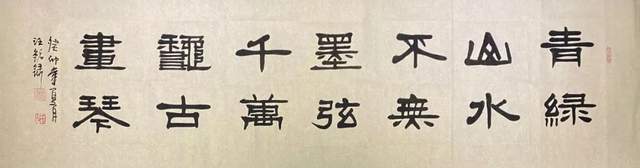 青山不墨千龝畫
緑水無弦萬古琴
癸卯年夏月